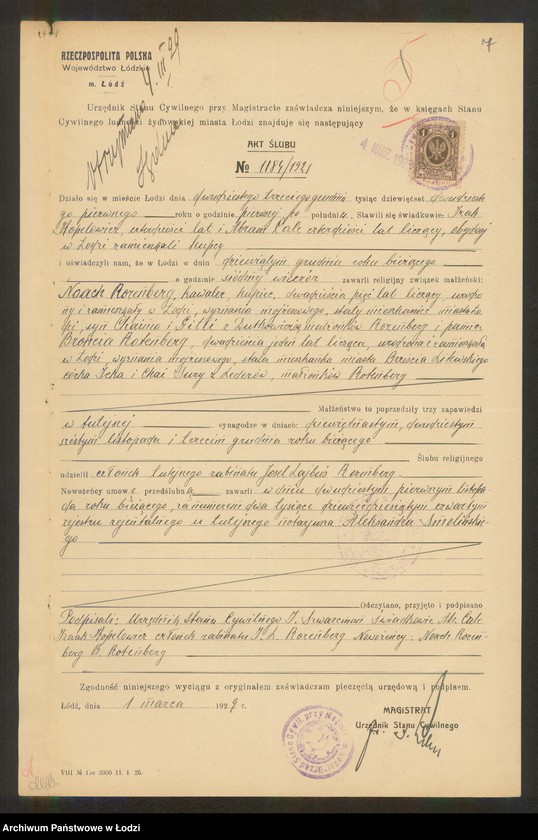 7
RZECZPOSPOLITA POLSKA
Województwo Łódzkie
m. Łódź
Otrzymałem 4. III 29
Urzędnik Stanu Cywilnego przy Magistracie zaświadcza niniejszym, że w księgach Stanu
Cywilnego ludności żydowskiej miasta Łodzi znajduje się następujący
AKT ŚLUBU
№ 1184/1921
Działo się w mieście Łodzi dnia dwudziestego trzeciego grudnia tysiąc dziewięćset dwudzieste
go pierwszego roku o godzinie pierwszej po południu. Stawili się świadkowie: Izaak
Kopelowicz, czterdzieści lat i Abram Calc czterdzieści lat liczący, obydwaj
w Łodzi zamieszkali kupcy
i oświadczyli nam, że w Łodzi w dniu dziewiątym grudnia roku bieżącego
o godzinie siódmej wieczór zawarli religijny związek małżeński:
Noach Rozenberg, kawaler, kupiec, dwadzieścia pięć lat liczący, urodzo
ny i zamieszkały w Łodzi, wyznania mojżeszowego, stały mieszkaniec miasta Ło
dzi, syn Chaima i Gitli z Lutkowiczów, małżonków Rozenberg i panna
Broncia Rotenberg, dwadzieścia jeden lat licząca, urodzona i zamieszkała
w Łodzi, wyznania mojżeszowego, stała mieszkanka miasta Brześcia Litewskiego
córka Icka i Chai Sury z Lederów, małżonków Rotenberg
Małżeństwo to poprzedziły trzy zapowiedzi
w tutejszej synagodze w dniach: dziewiętnastym, dwudziestym
szóstym listopada i trzecim grudnia roku bieżącego
Ślubu religijnego
udzielił członek tutejszego rabinatu Josel Lajbuś Rozenberg.
Nowożeńcy umowę przedślubną zawarli w dniu dwudziestym pierwszym listopa
da roku bieżącego, za numerem dwa tysiące dziewięćdziesiątym czwartym
rejestru rejentalnego u tutejszego notarjusza Aleksandra Smolińskie-
go
Odczytano, przyjęto i podpisano
Podpisali: Urzędnik Stanu Cywilnego I. Szwarcman Świadkowie M. Calc
Izaak Kopelowicz członek rabinatu J. L. Rozenberg Nowożeńcy: Noach Rozen-
berg B. Rotenberg
Zgodność niniejszego wyciągu z oryginałem zaświadczam pieczęcią urzędową i podpisem.
Łódź, dnia 1 marca 1929 r.
MAGISTRAT
Urzędnik Stanu Cywilnego
VIII № 1 3000 11. 1 26.
Archiwum Państwowe w Łodzi